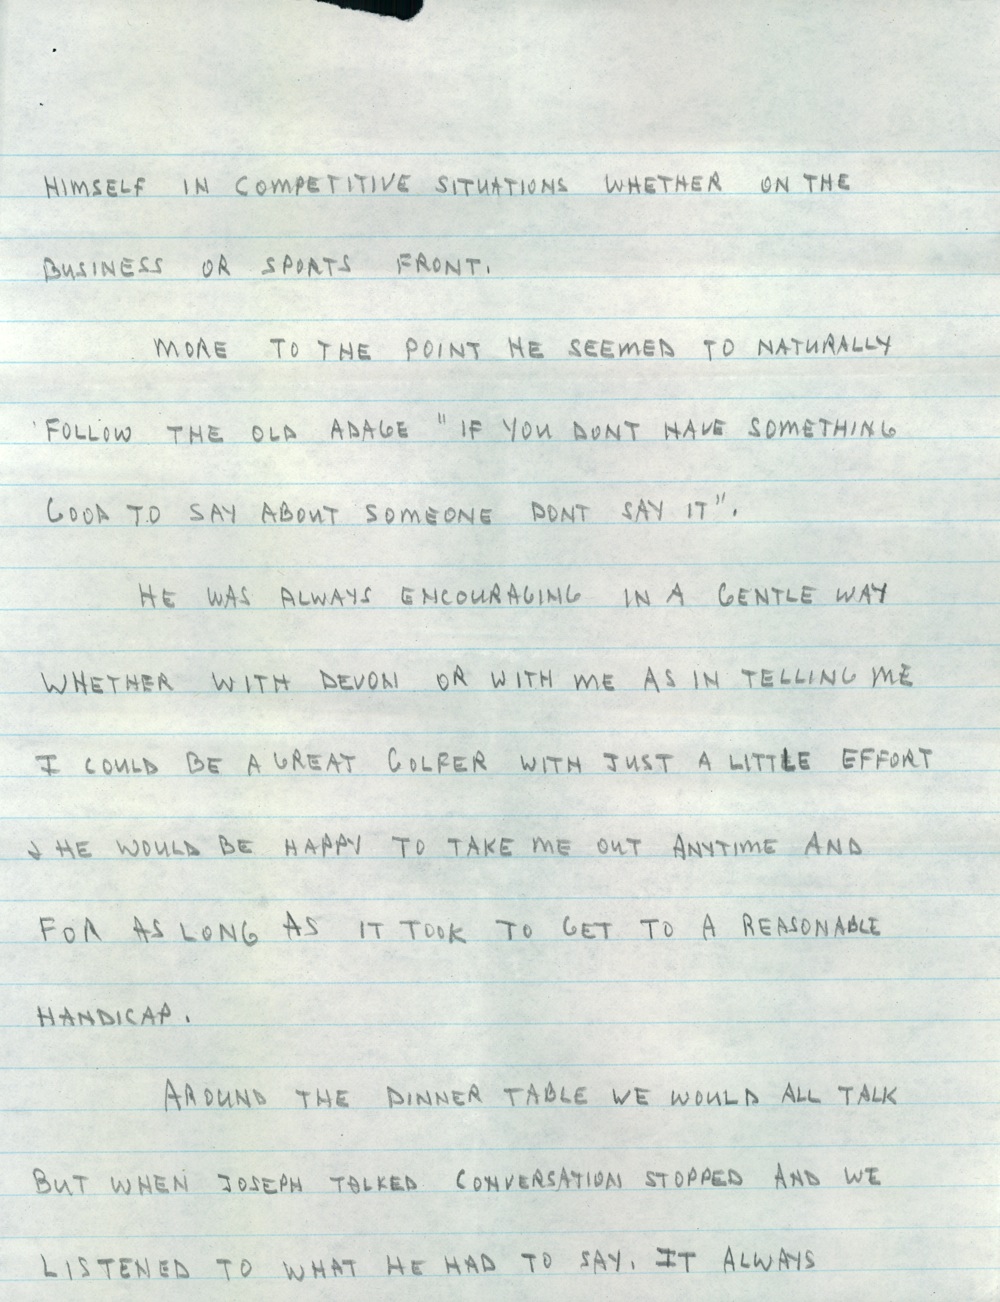 HIMSELF IN COMPETITIVE SITUATIONS WHETHER ON THE
BUSINESS OR SPORTS FRONT.
MORE TO THE POINT HE SEEMED TO NATURALLY
FOLLOW THE OLD ADAGE "IF YOU DONT HAVE SOMETHING
GOOD TO SAY ABOUT SOMEONE DONT SAY IT".
HE WAS ALWAYS ENCOURAGING IN A GENTLE WAY
WHETHER WITH DEVON OR WITH ME AS IN TELLING ME
I COULD BE A GREAT GOLFER WITH JUST A LITTLE EFFORT
& HE WOULD BE HAPPY TO TAKE ME OUT ANYTIME AND
FOR AS LONG AS IT TOOK TO GET TO A REASONABLE
HANDICAP.
AROUND THE DINNER TABLE WE WOULD ALL TALK
BUT WHEN JOSEPH TALKED CONVERSATION STOPPED AND WE
LISTENED TO WHAT HE HAD TO SAY. IT ALWAYS